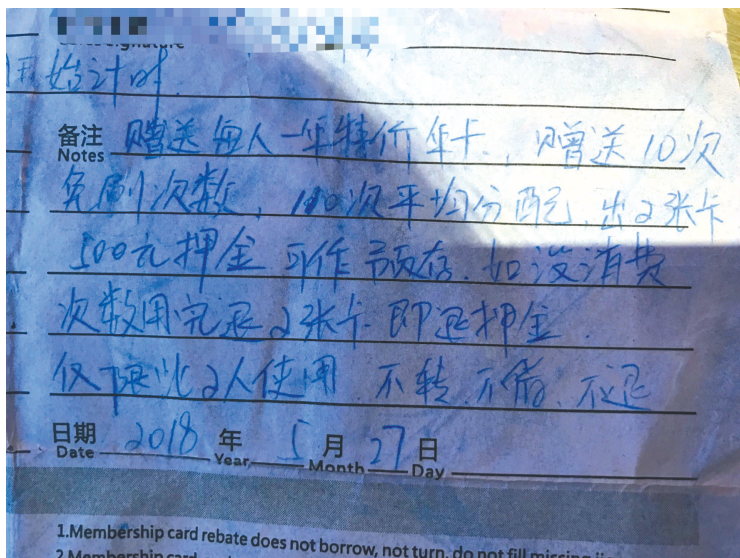 Signature
开始计时.
备注 赠送每人一年特价年卡., 赠送10次
Notes
免刷次数、100次平均分配, 出2张卡
500元押金 可作预存. 如没消费
次数用完退2张卡 即退押金.
仅限此2人使用. 不转. 不借. 不退
日期 2018 年 5 月 27 日
Date Year Month Day
1.Membership card rebate does not borrow, not turn, do not fill missing
2.Membership card